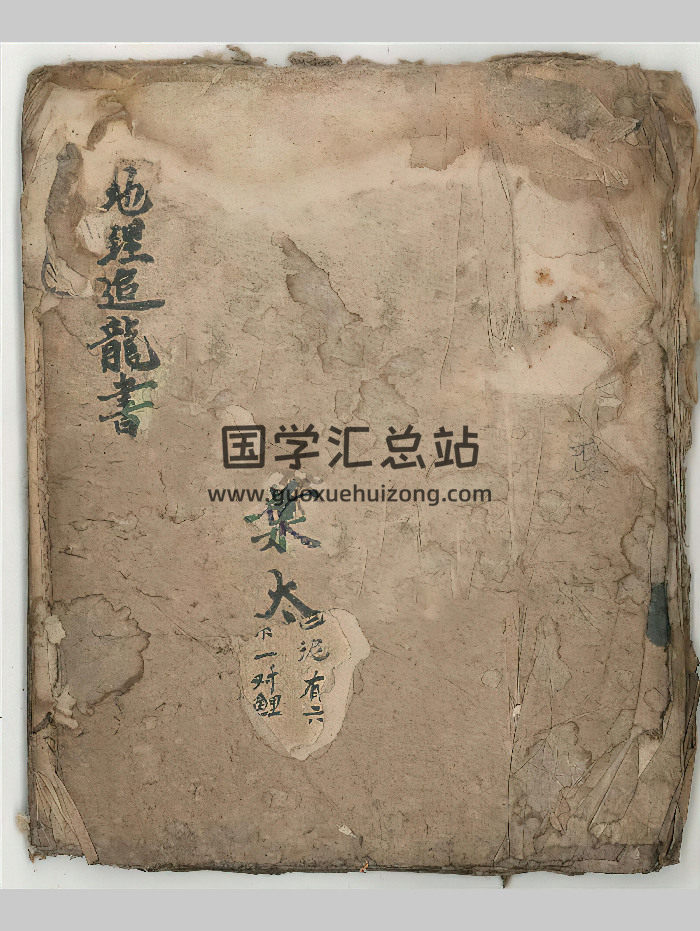 地理追龍書
国学汇总站
www.guoxuehuizong.com
葉太
泥有六
下一对鲤